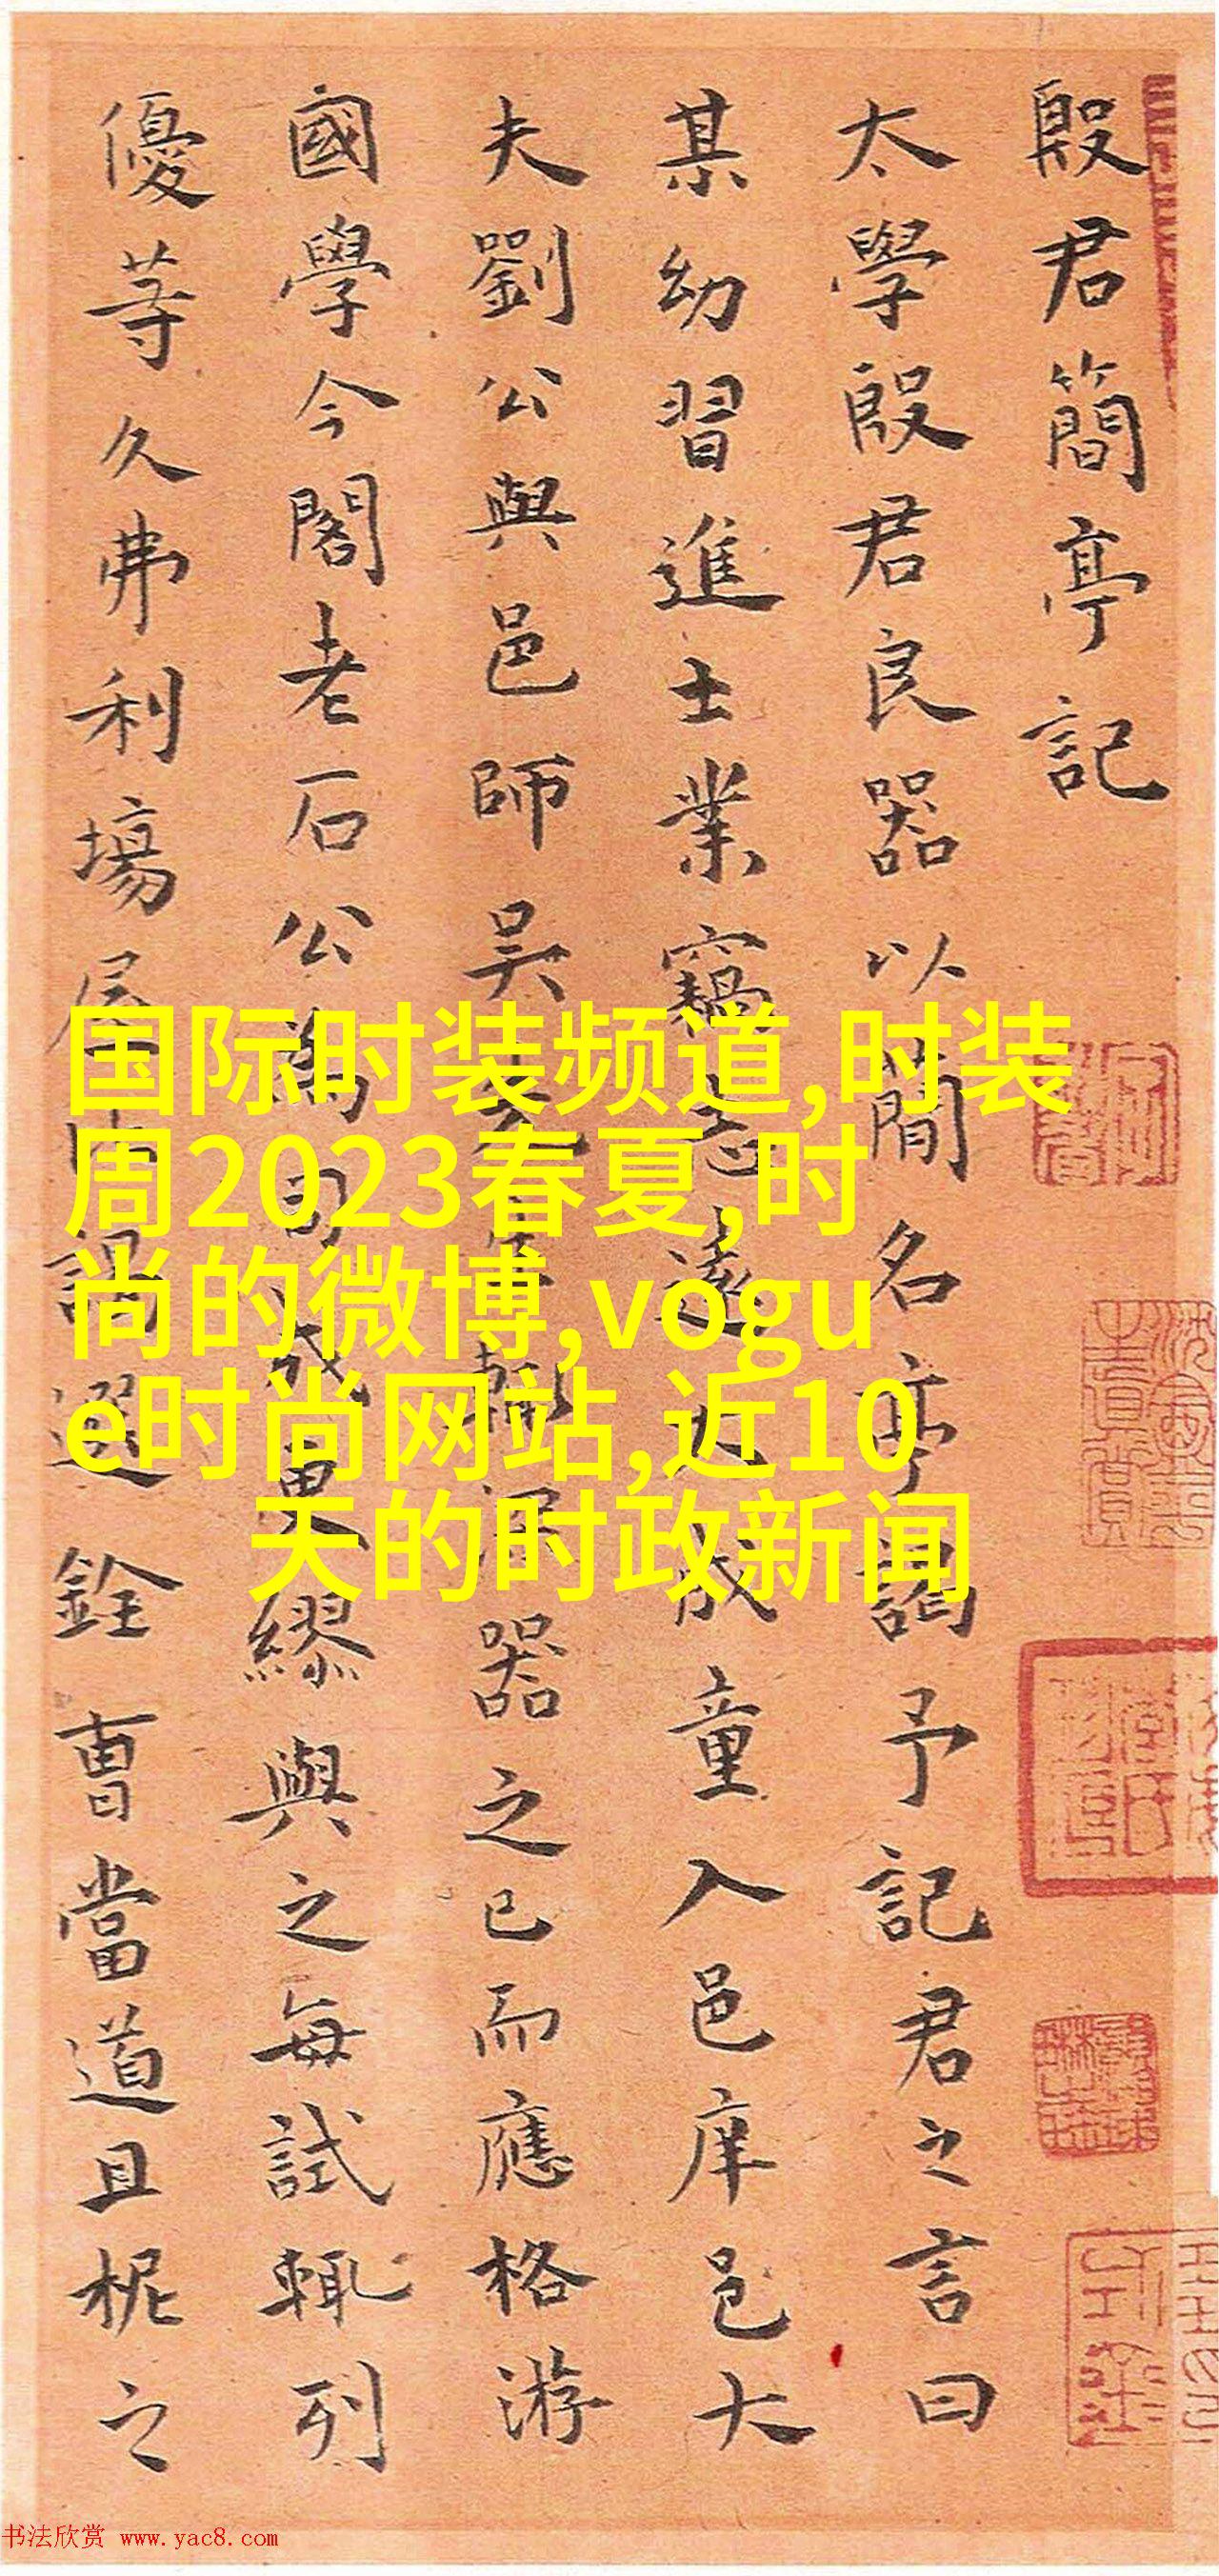 殷君簡亭記
太學殷君良器以簡名亭謁予記君之言曰
某幼習進士業竊志遠大成童入邑庠邑大
夫劉公與邑師吳先生輒深器之已而應格游
國學今閣老石公為司成更繆與之每試輒列
優等久弗利場屋由謁選銓曹當道且柅之
国际时装频道,时装
周2023春夏,时
尚的微博,vogu
e时尚网站,近10
天的时政新闻
书法欣赏 www.yac8.com